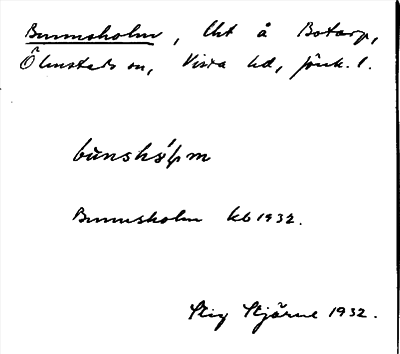 Bunnsholm, lht å Botarp,
Ölmstads sn, Vista hd, Jönk. l.
bùnshɔ́ḷm
Bunnsholm kb 1932.
Stig Stjärne 1932.